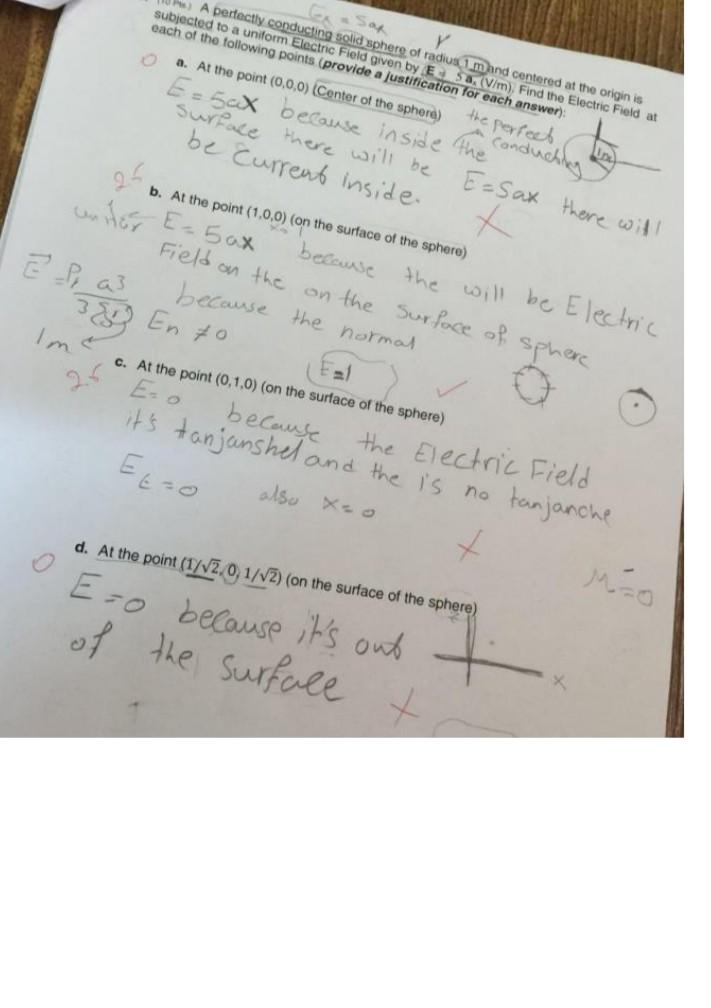 Ex = 5ax
A perfectly conducting solid sphere of radius 1 m and centered at the origin is
subjected to a uniform Electric Field given by E = 5 aₓ (V/m). Find the Electric Field at
each of the following points (provide a justification for each answer):
0
a. At the point (0,0,0) (Center of the sphere)
the perfect
conducting
1m
E = 5ax because inside the E = 5ax there will
surface there will be
be current inside.
b. At the point (1,0,0) (on the surface of the sphere)
E = 5ax because the will be Electric
Field on the on the surface of sphere
because the normal
En ≠ 0
a³
1m
E=1
c. At the point (0,1,0) (on the surface of the sphere)
E=0 because the Electric Field
it's tanjanshel and the is no tanjanche
Et = 0 also x=0
0
d. At the point (1/√2, 0, 1/√2) (on the surface of the sphere)
E=0 because it's out
of the surface
x